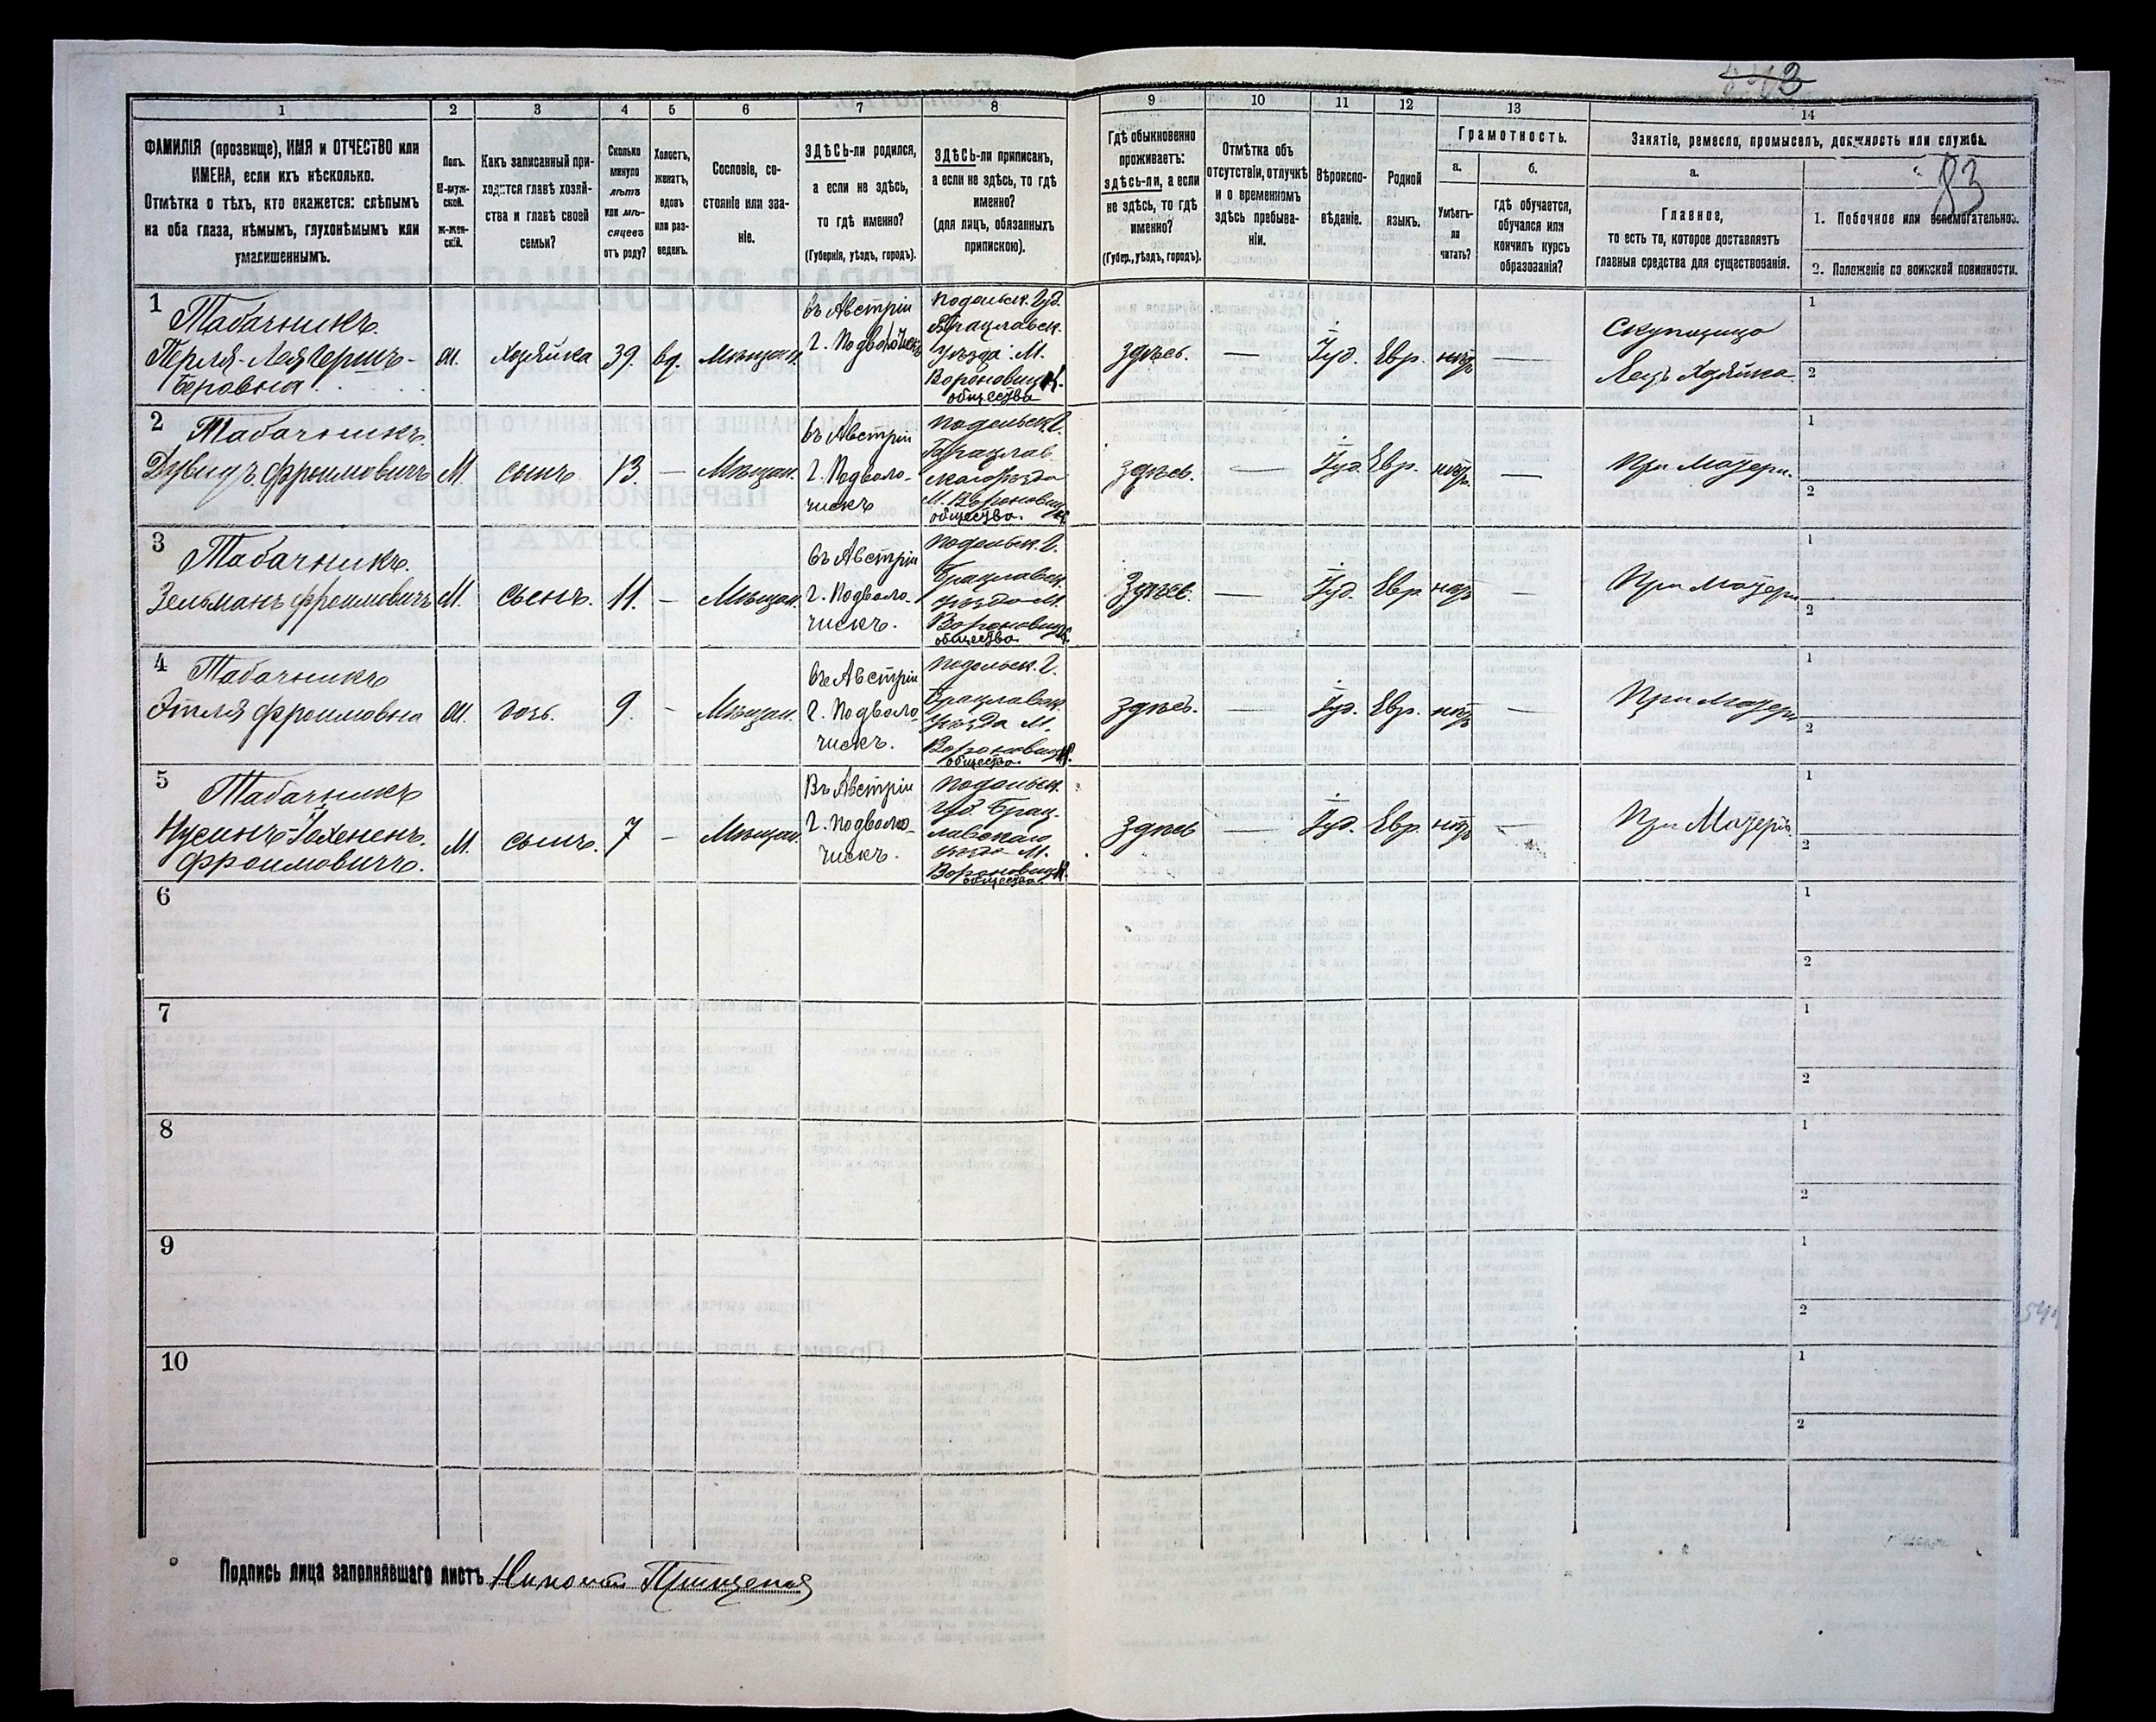 83
1 2 3 4 5 6 7 8 9 10 11 12 13 14
ФАМИЛІЯ (прозвище), ИМЯ и ОТЧЕСТВО или
ИМЕНА, если ихъ нѣсколько.
Отмѣтка о тѣхъ, кто окажется: слѣпымъ
на оба глаза, нѣмымъ, глухонѣмымъ или
умалишеннымъ.
Полъ.
М-муж-
ской.
Ж-жен-
скій.
Какъ записанный при-
ходится главѣ хозяй-
ства и главѣ своей
семьи?
Сколько
минуло
лѣтъ
или мѣ-
сяцевъ
отъ роду?
Холостъ,
женатъ,
вдовъ
или раз-
веденъ.
Сословіе, со-
стояніе или зва-
ніе.
ЗДѢСЬ-ли родился,
а если не здѣсь,
то гдѣ именно?
(Губернія, уѣздъ, городъ).
ЗДѢСЬ-ли приписанъ,
а если не здѣсь, то гдѣ
именно?
(для лицъ, обязанныхъ
припискою).
Гдѣ обыкновенно
проживаетъ:
здѣсь-ли, а если
не здѣсь, то гдѣ
именно?
(Губер., уѣздъ, городъ).
Отмѣтка объ
отсутствіи, отлучкѣ
и о временномъ
здѣсь пребыва-
ніи.
Вѣроиспо-
вѣданіе.
Родной
языкъ.
Грамотность.
а.
Умѣетъ-
ли
читать?
б.
гдѣ обучается,
обучался или
кончилъ курсъ
образованія?
Занятіе, ремесло, промыселъ, должность или служба.
а.
Главное,
то есть то, которое доставляетъ
главныя средства для существованія.
1. Побочное или вспомогательное.
2. Положеніе по воинской повинности.
1
Табачникъ
Перля-Лея Гершъ-
Беровна
Ж.
Хозяйка
39.
вд.
Мѣщан.
въ Австріи
г. Подволочискъ
Подольск. Губ.
Брацлавск.
уѣзда М.
Вороновицк.
общества
здѣсь.
—
Іуд.
Евр.
нѣтъ
—
1
2
2
Табачникъ.
Дувидъ Фроимовичъ
М.
сынъ
13.
—
Мѣщан.
въ Австріи
г. Подволо-
чискъ
Подольск. Г.
Брацлав
скаго уѣзда
М. Вороновицк.
общества.
здѣсь.
—
Іуд.
Евр.
нѣтъ
—
При матери.
1
2
3
Табачникъ.
Зельманъ Фроимовичъ
М.
сынъ.
11.
—
Мѣщан.
въ Австріи
г. Подволо-
чискъ.
Подольск. Г.
Брацлавск.
уѣзда М.
Вороновицк.
общества.
здѣсь.
—
Іуд.
Евр.
нѣтъ
—
При матери
1
2
4
Табачникъ
Этля Фроимовна
Ж.
дочь.
9.
—
Мѣщан.
въ Австріи
г. Подволо-
чискъ.
Подольск. Г.
Брацлавск.
уѣзда М.
Вороновицк.
общества.
здѣсь.
—
Іуд.
Евр.
нѣтъ
—
При матери
1
2
5
Табачникъ
Фроимовичъ.
М.
сынъ.
7
—
Мѣщан.
Въ Австріи
г. Подволо-
чискъ.
Подольск.
Губ. Брац-
лавскаго
уѣзда М.
Вороновицк.
общества.
здѣсь
—
Іуд.
Евр.
нѣтъ
—
При матери
1
2
6
1
2
7
1
2
8
1
2
9
1
2
10
1
2
Подпись лица заполнявшаго листъ